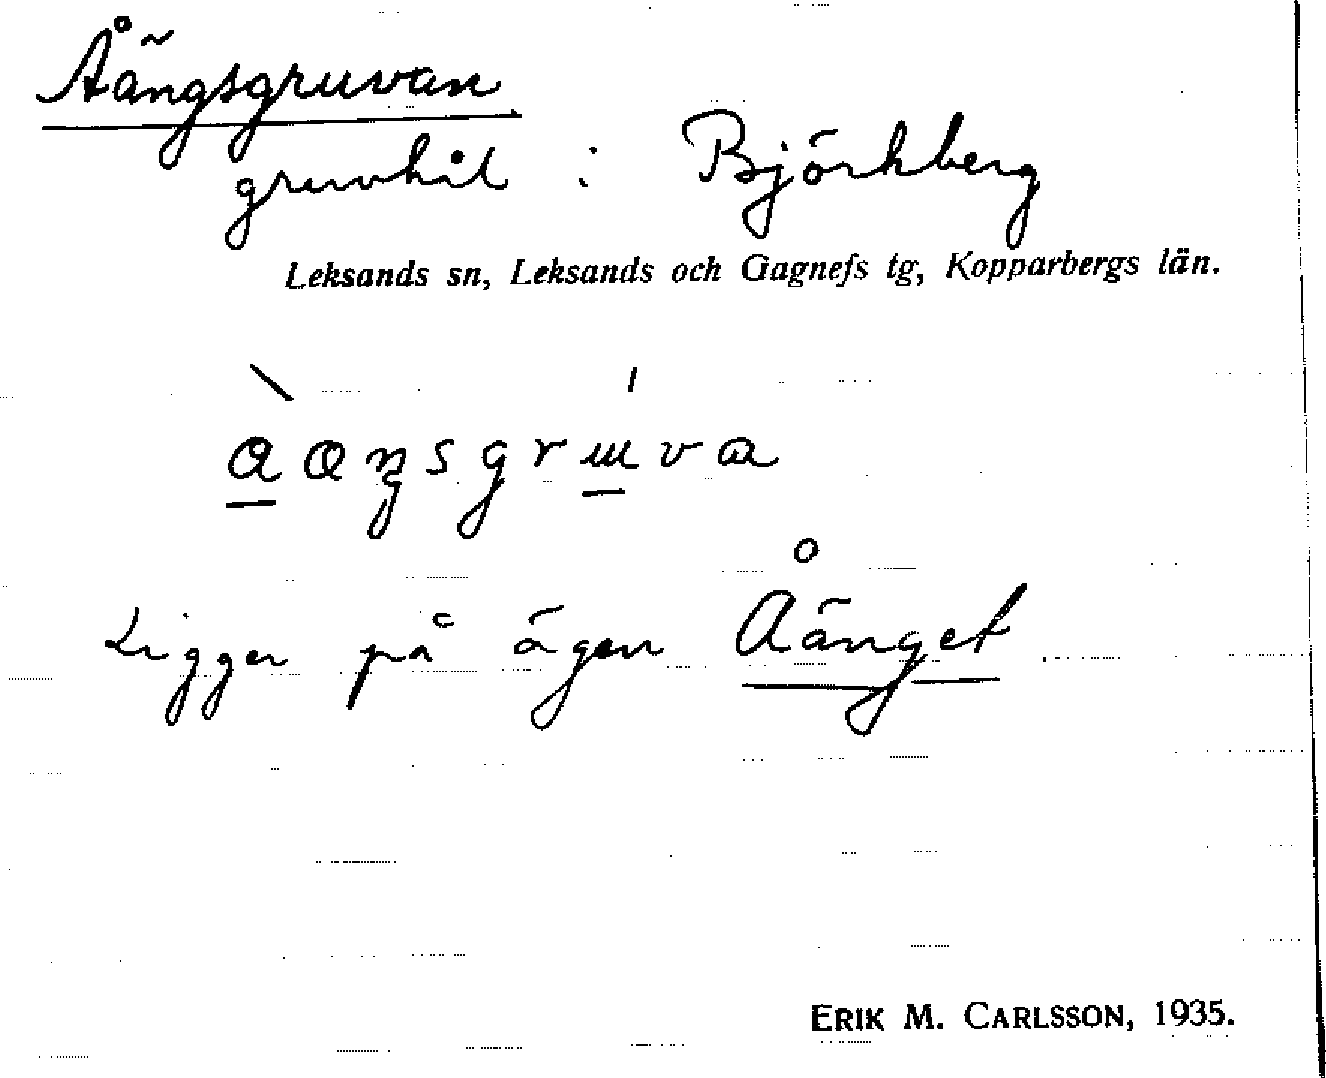 Åängsgruvan
gruvhål i Björkberg
Leksands sn, Leksands och Gagnefs tg, Kopparbergs län.
Ligger på ägan Åänget
ERIK M. CARLSSON, 1935.